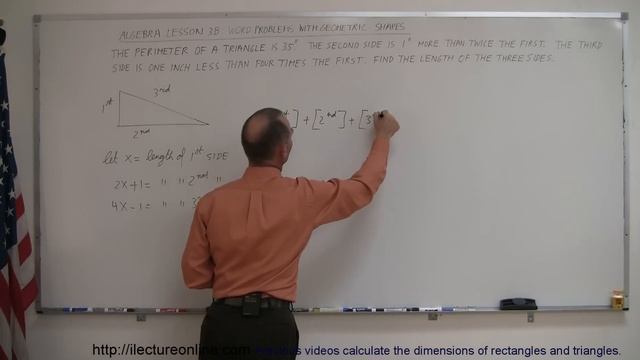 ALGEBRA LESSON 3B WORD PROBLEMS WITH GEOMETRIC SHAPES
THE PERIMETER OF A TRIANGLE IS 35" THE SECOND SIDE IS 1" MORE THAN TWICE THE FIRST. THE THIRD
SIDE IS ONE INCH LESS THAN FOUR TIMES THE FIRST. FIND THE LENGTH OF THE THREE SIDES.
3rd
1st
2nd
] + [2nd] + [3
let X = length of 1st SIDE
2X+1 = " " 2nd "
4X-1 = " "
http://ilectureonline.com
videos calculate the dimensions of rectangles and triangles.